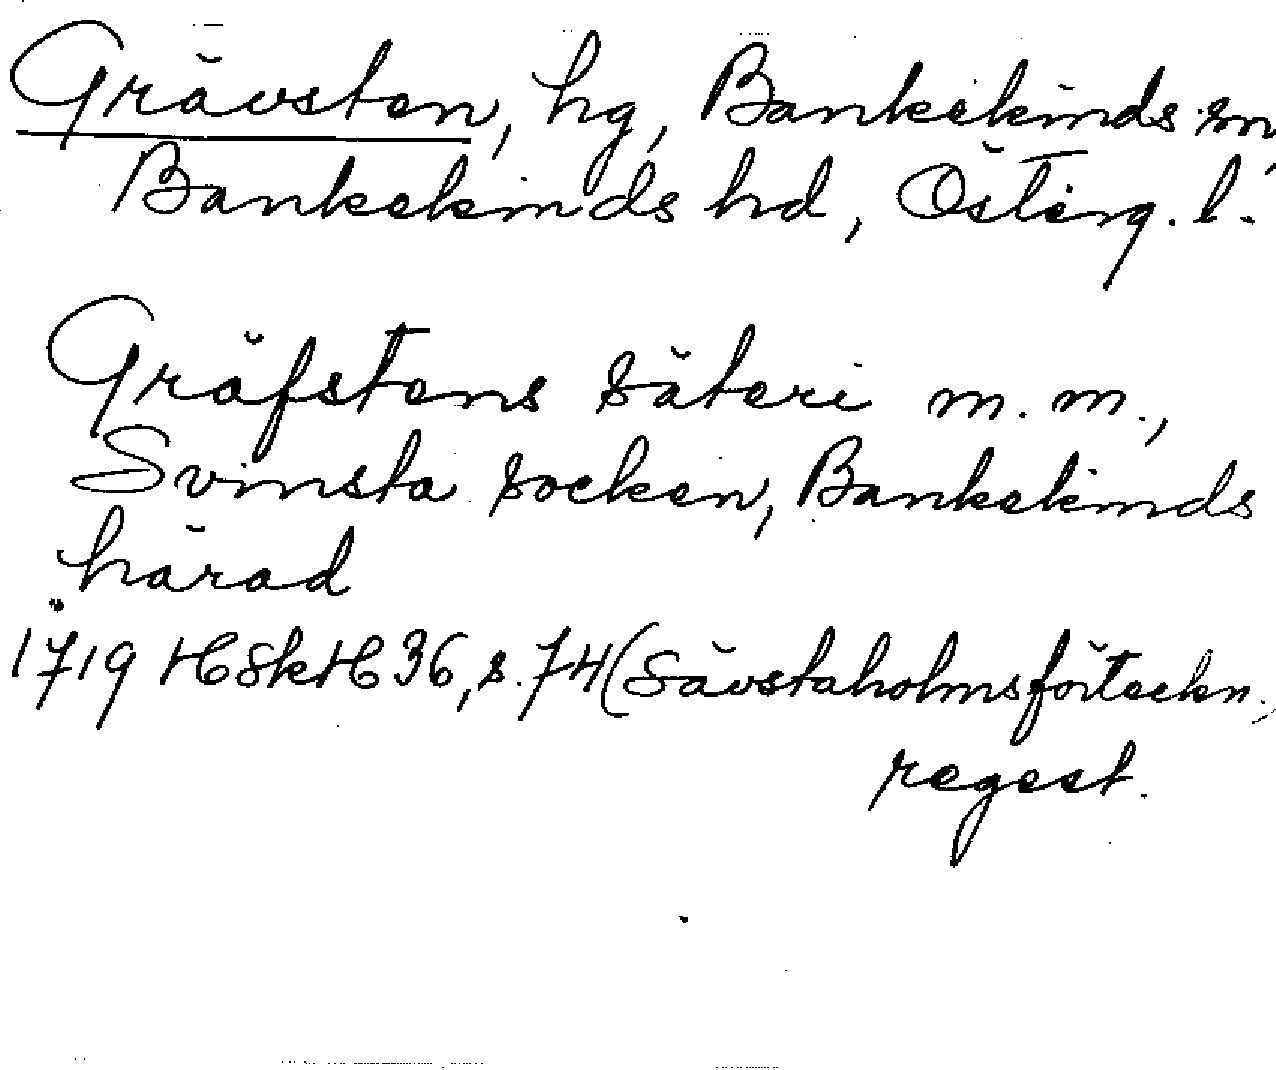 Grävsten, hg, Bankekinds sn,
Bankekinds hd, Österg. l.
Gräfstens säteri m. m.,
Svinsta socken, Bankekinds
härad
1719 HSkH 36, s. 74 (Sävstaholmsförteckn.,
regest.